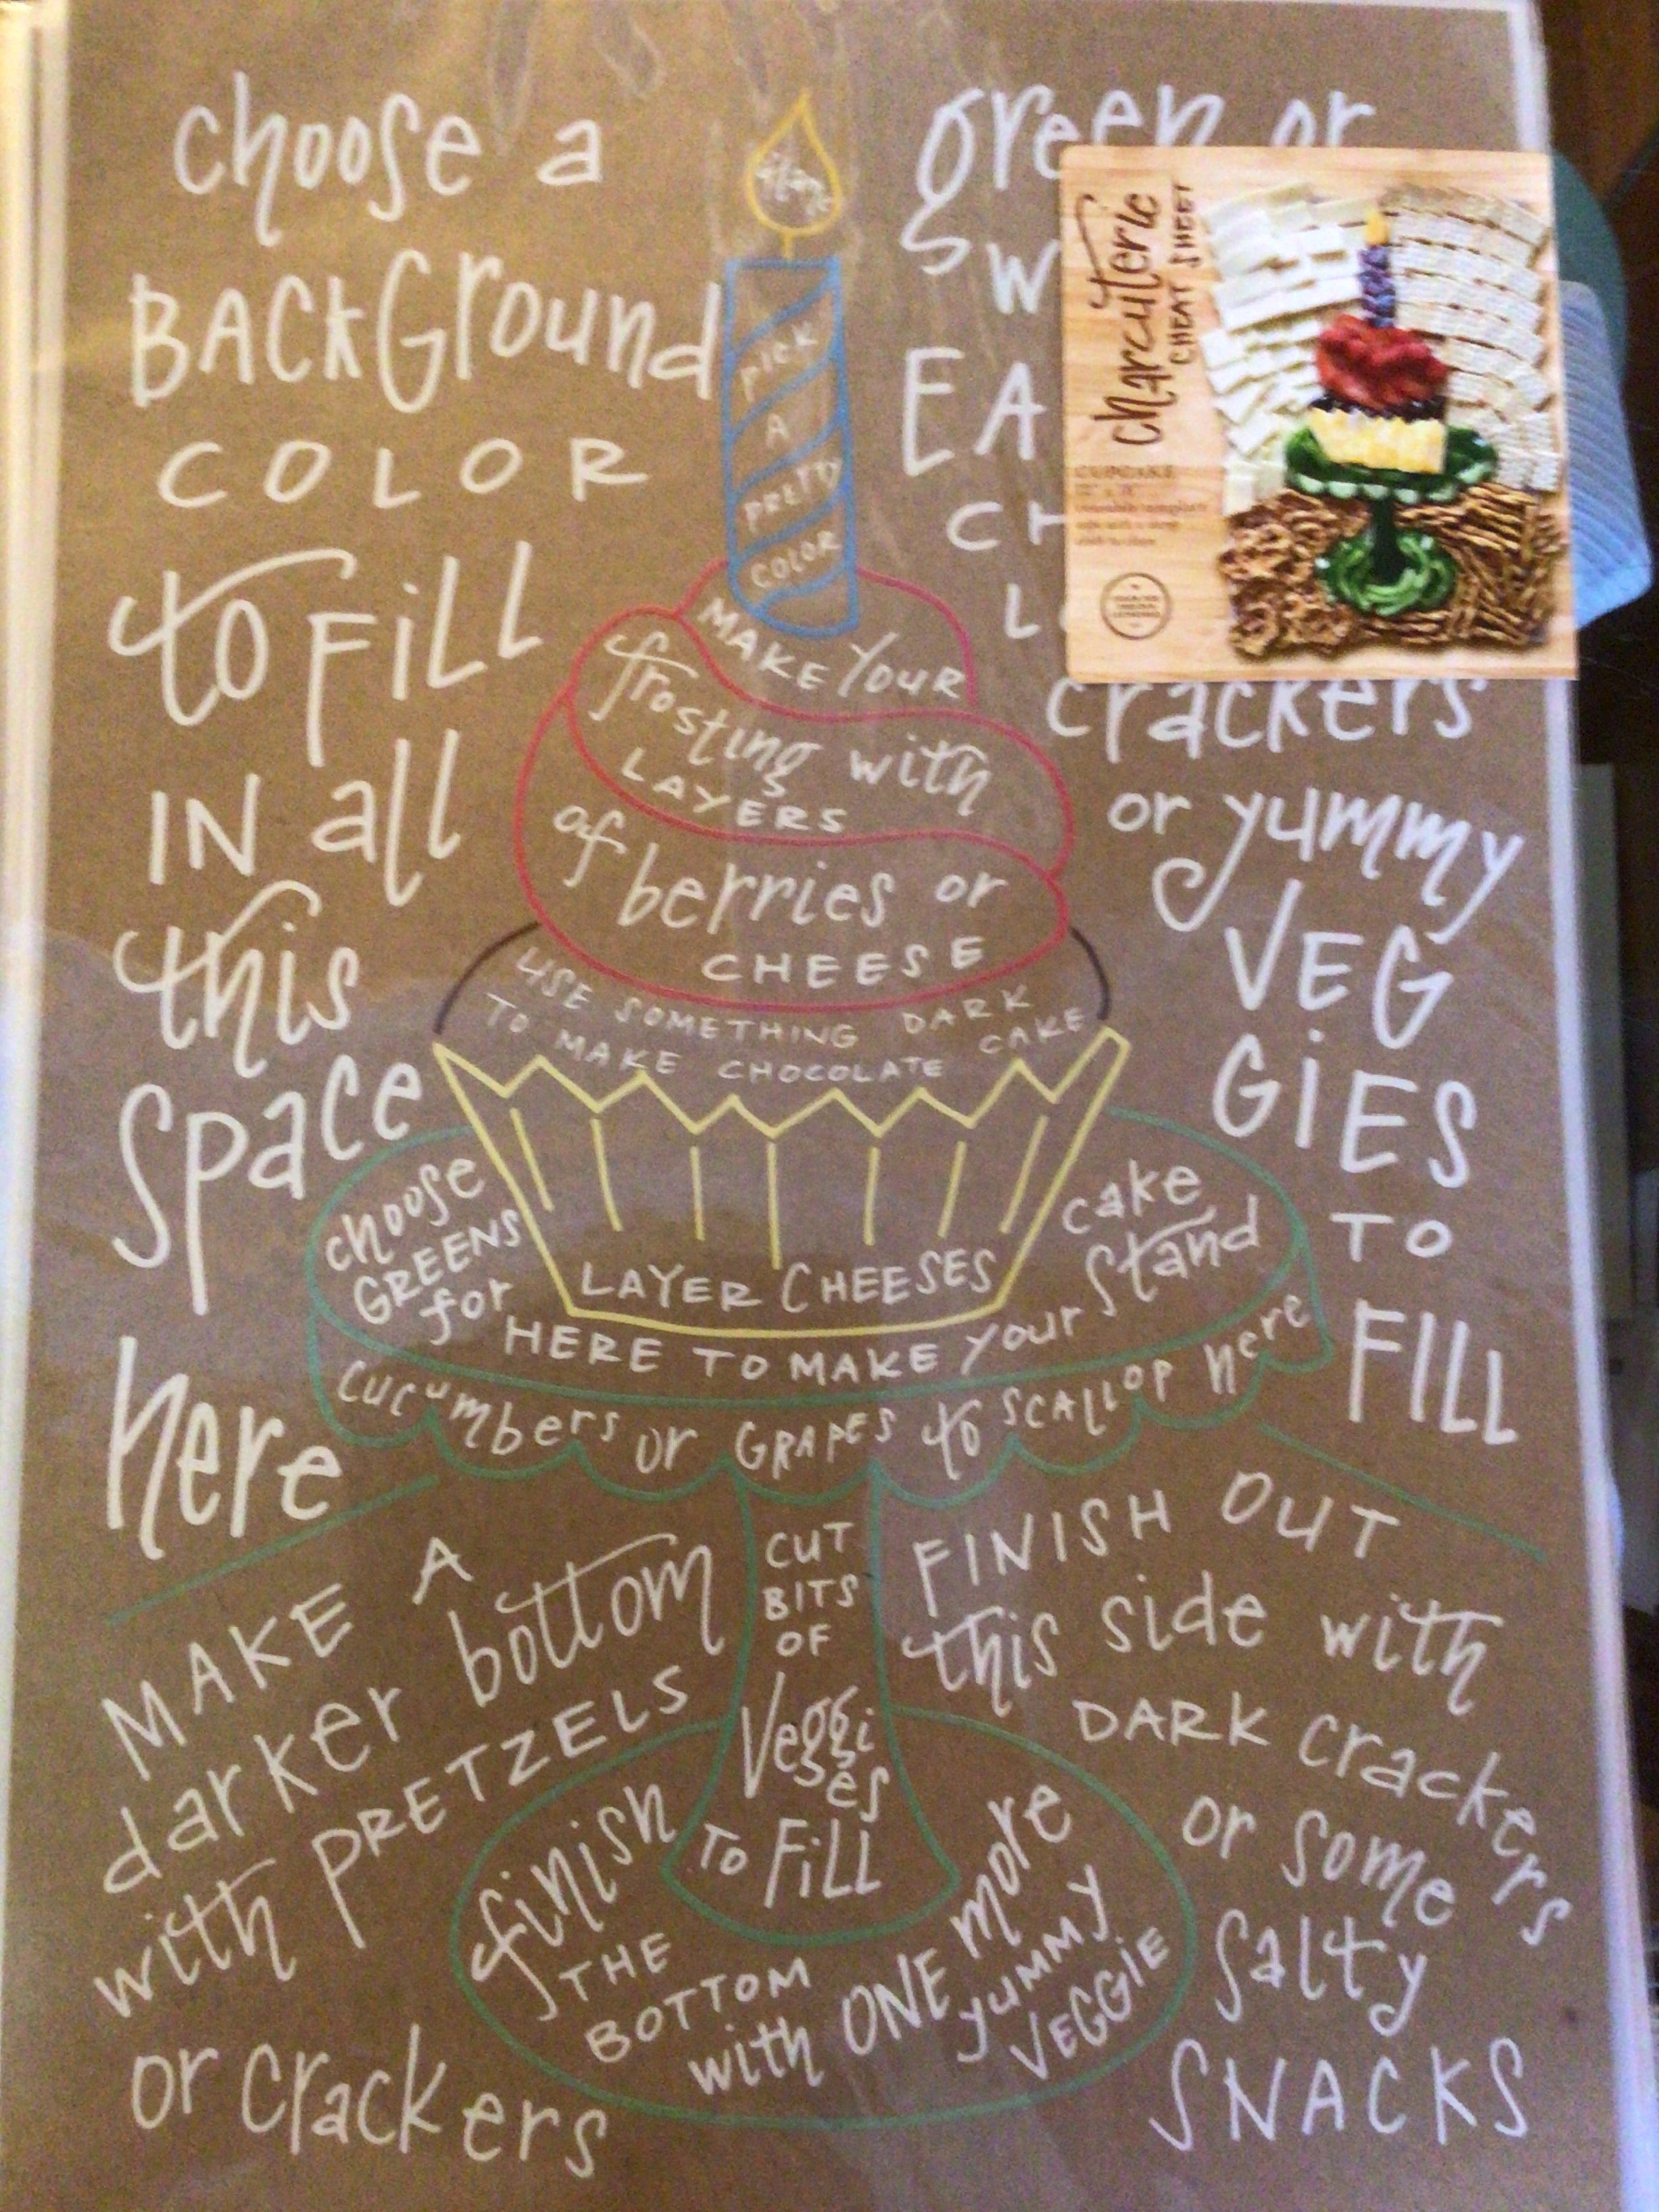 choose a
BACKGround
COLOR
to FiLL
IN all
this
space
here
PICK
A
PRETTY
COLOR
green or
SW
EA
CH
crackers
or yummy
VEG
GiES
TO
FILL
charcuterie
CHEAT SHEET
CUPCAKE
MAKE YOUR
frosting with
LAYERS
of berries or
CHEESE
USE SOMETHING DARK
TO MAKE CHOCOLATE CAKE
LAYER CHEESES
choose
GREENS
for
HERE TO MAKE your
cake
stand
cucumbers or GRAPES to SCALLOP here
MAKE A
darker bottom
with PRETZELS
or crackers
CUT
BITS
OF
Veggi
es
TO FiLL
finish
THE
BOTTOM
with ONE more
yummy
VEGGIE
FINISH OUT
this side with
DARK crackers
or some
salty
SNACKS